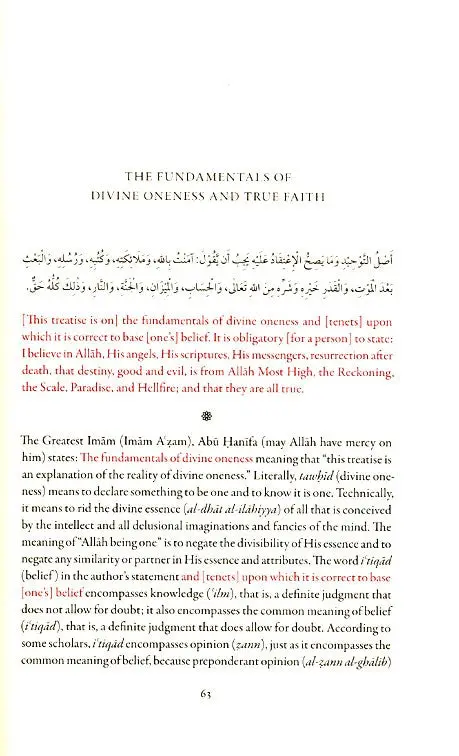 THE FUNDAMENTALS OF
DIVINE ONENESS AND TRUE FAITH
أَصْلُ التَّوْحِيْدِ وَمَا يَصِحُّ الْاِعْتِقَادُ عَلَيْهِ يَجِبُ أَنْ يَقُوْلَ: آمَنْتُ بِاللهِ، وَمَلَائِكَتِهِ، وَكُتُبِهِ، وَرُسُلِهِ، وَالْبَعْثِ
بَعْدَ الْمَوْتِ، وَالْقَدَرِ خَيْرِهِ وَشَرِّهِ مِنَ اللهِ تَعَالَى، وَالْحِسَابِ، وَالْمِيْزَانِ، وَالْجَنَّةِ، وَالنَّارِ، وَذٰلِكَ كُلُّهُ حَقٌّ.
[This treatise is on] the fundamentals of divine oneness and [tenets] upon
which it is correct to base [one's] belief. It is obligatory [for a person] to state:
I believe in Allāh, His angels, His scriptures, His messengers, resurrection after
death, that destiny, good and evil, is from Allāh Most High, the Reckoning,
the Scale, Paradise, and Hellfire; and that they are all true.
The Greatest Imām (Imām A'ẓam), Abū Ḥanīfa (may Allāh have mercy on
him) states: The fundamentals of divine oneness meaning that "this treatise is
an explanation of the reality of divine oneness." Literally, tawḥīd (divine one-
ness) means to declare something to be one and to know it is one. Technically,
it means to rid the divine essence (al-dhāt al-ilāhiyya) of all that is conceived
by the intellect and all delusional imaginations and fancies of the mind. The
meaning of "Allāh being one" is to negate the divisibility of His essence and to
negate any similarity or partner in His essence and attributes. The word i'tiqād
(belief) in the author's statement and [tenets] upon which it is correct to base
[one's] belief encompasses knowledge ('ilm), that is, a definite judgment that
does not allow for doubt; it also encompasses the common meaning of belief
(i'tiqād), that is, a definite judgment that does allow for doubt. According to
some scholars, i'tiqād encompasses opinion (ẓann), just as it encompasses the
common meaning of belief, because preponderant opinion (al-ẓann al-ghālib)
63